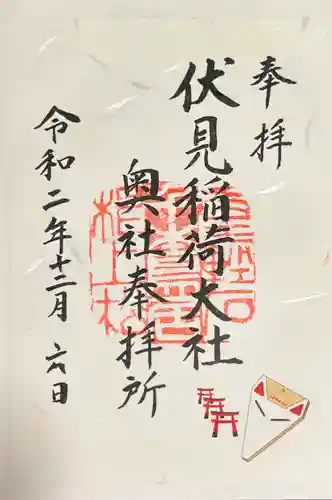 奉拝
伏見稲荷大社
奥社奉拝所
令和二年十二月六日